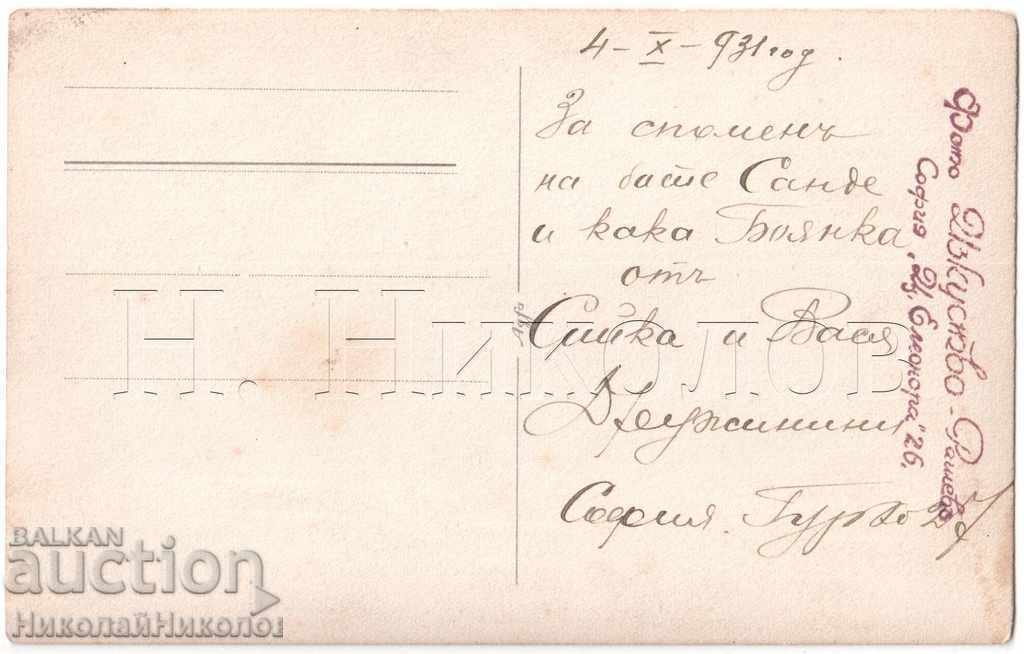 4-X-931 год.
За споменъ
на бате Санде
и кака Боянка
отъ
Сийка и Вася
Дружинини
София. Гурко
Фото Изкуство-Рашево
София, "Ц. Елеонора" 26.
Н. НИКОЛОВ
BALKAN
auction
НиколайНиколов